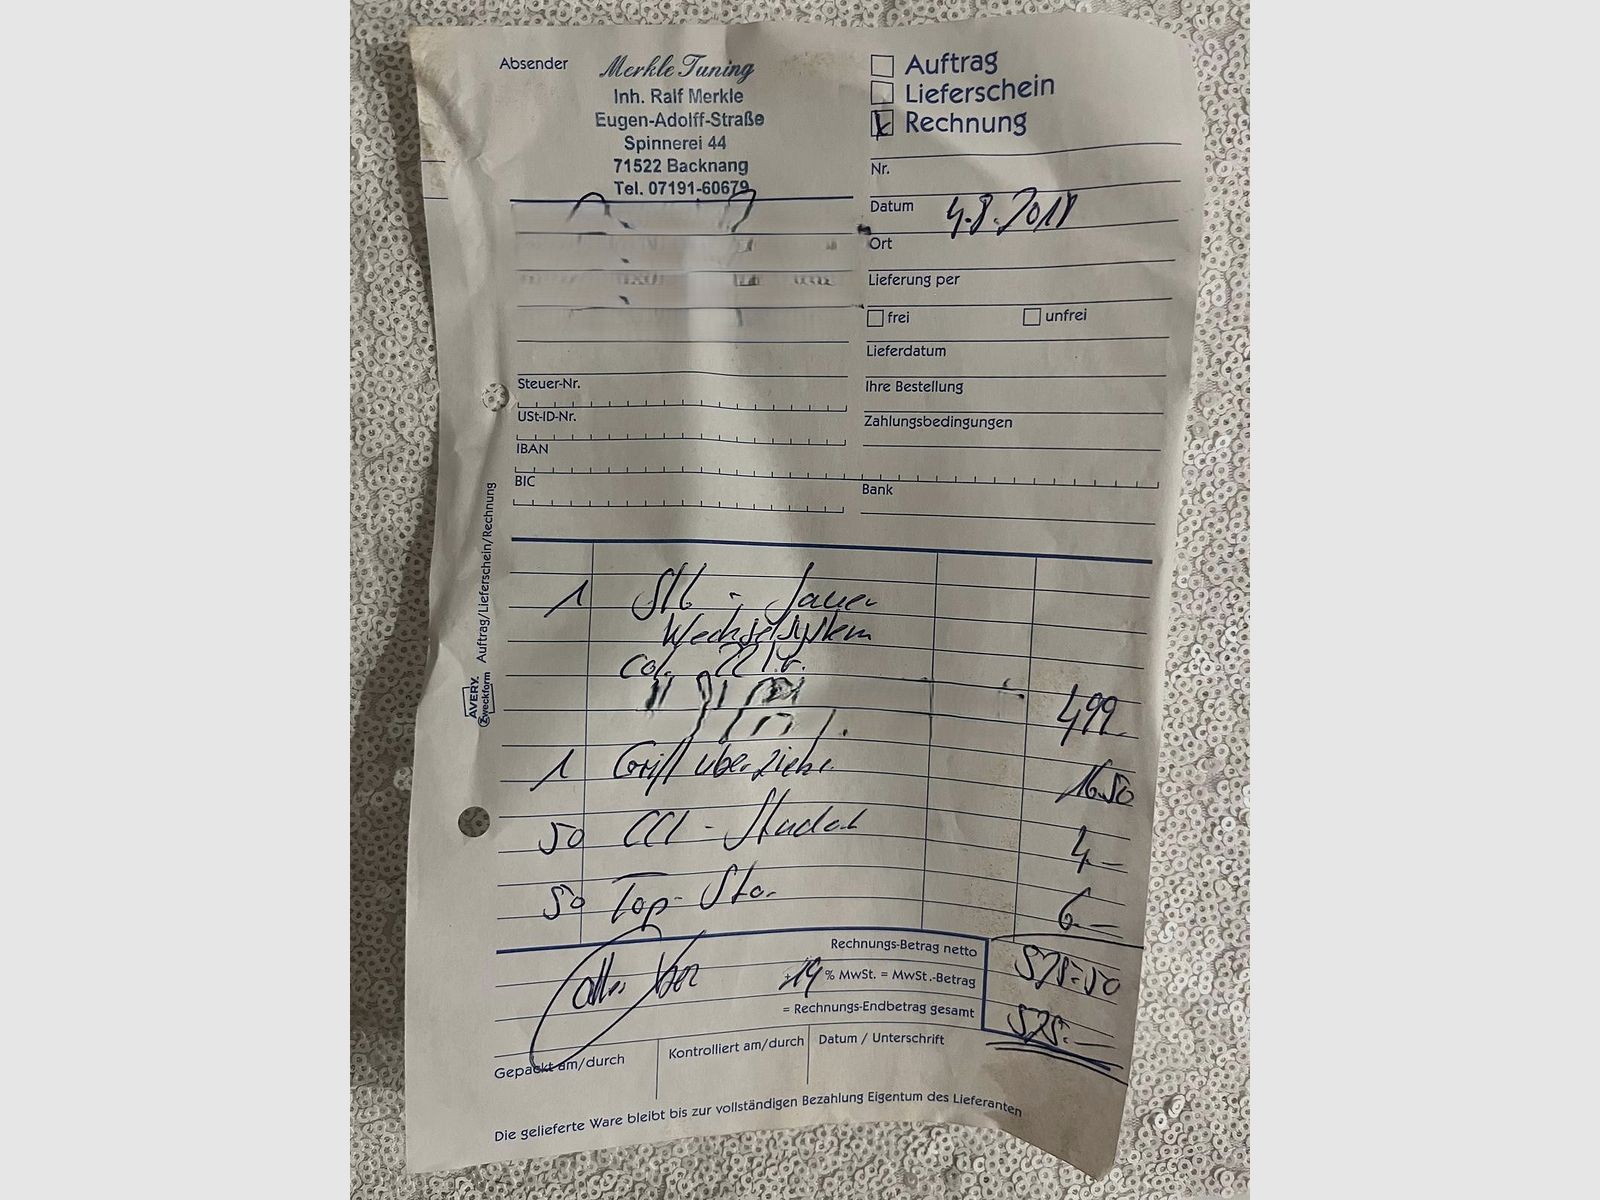 Absender
Merkle Tuning
Inh. Ralf Merkle
Eugen-Adolff-Straße
Spinnerei 44
71522 Backnang
Tel. 07191-60679
Auftrag
Lieferschein
Rechnung
Nr.
Datum 4.8.2018
Ort
Lieferung per
frei unfrei
Lieferdatum
Ihre Bestellung
Zahlungsbedingungen
Steuer-Nr.
USt-ID-Nr.
IBAN
BIC
Bank
AVERY Zweckform Auftrag/Lieferschein/Rechnung
1
Wechselsystem
499.-
1 Griff überziehe 16.50
50 CCI - 4.-
50 Top- 6.-
Rechnungs-Betrag netto
+19 % MwSt. = MwSt.-Betrag
= Rechnungs-Endbetrag gesamt 525.-
Gepackt am/durch
Kontrolliert am/durch
Datum / Unterschrift
Die gelieferte Ware bleibt bis zur vollständigen Bezahlung Eigentum des Lieferanten